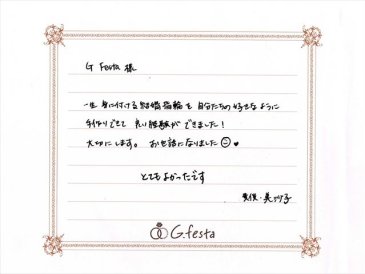 G Festa 様
一生身に付ける結婚指輪を自分たちの好きなように
手作りできて良い経験ができました!
大切にします。お世話になりました
とてもよかったです
美沙子
G.festa